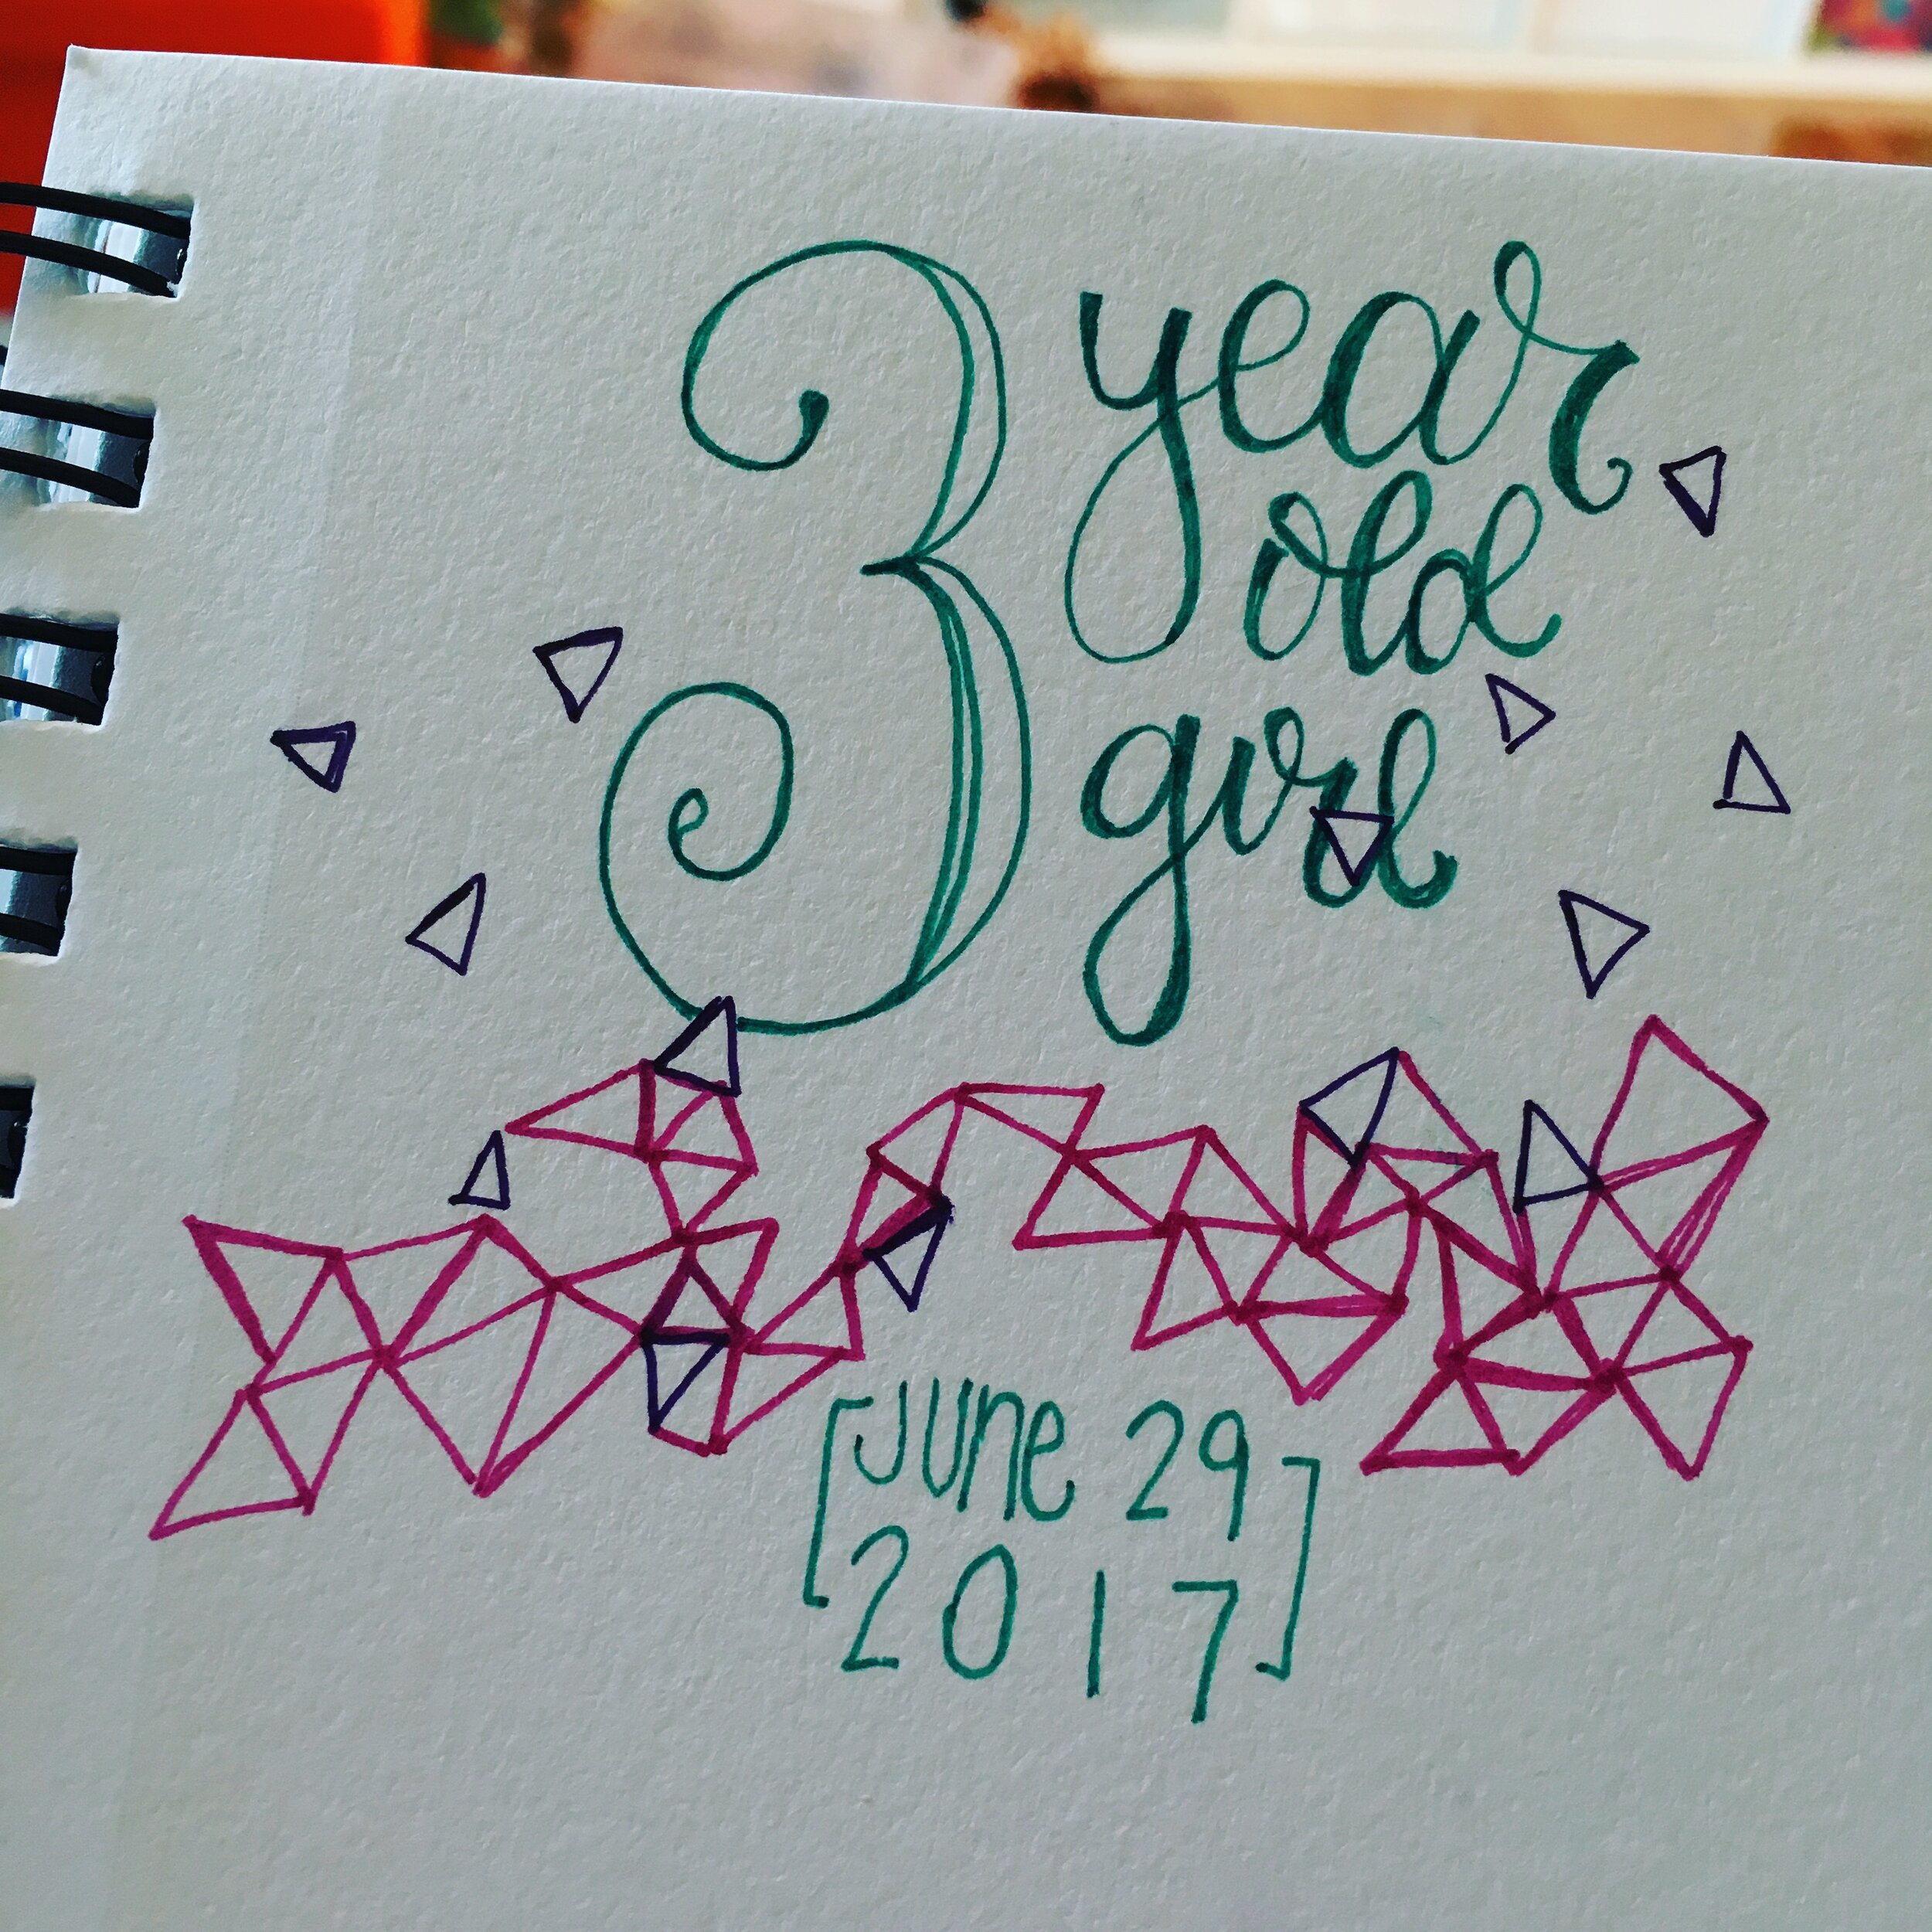 3 year
old
girl
[June 29
2017]